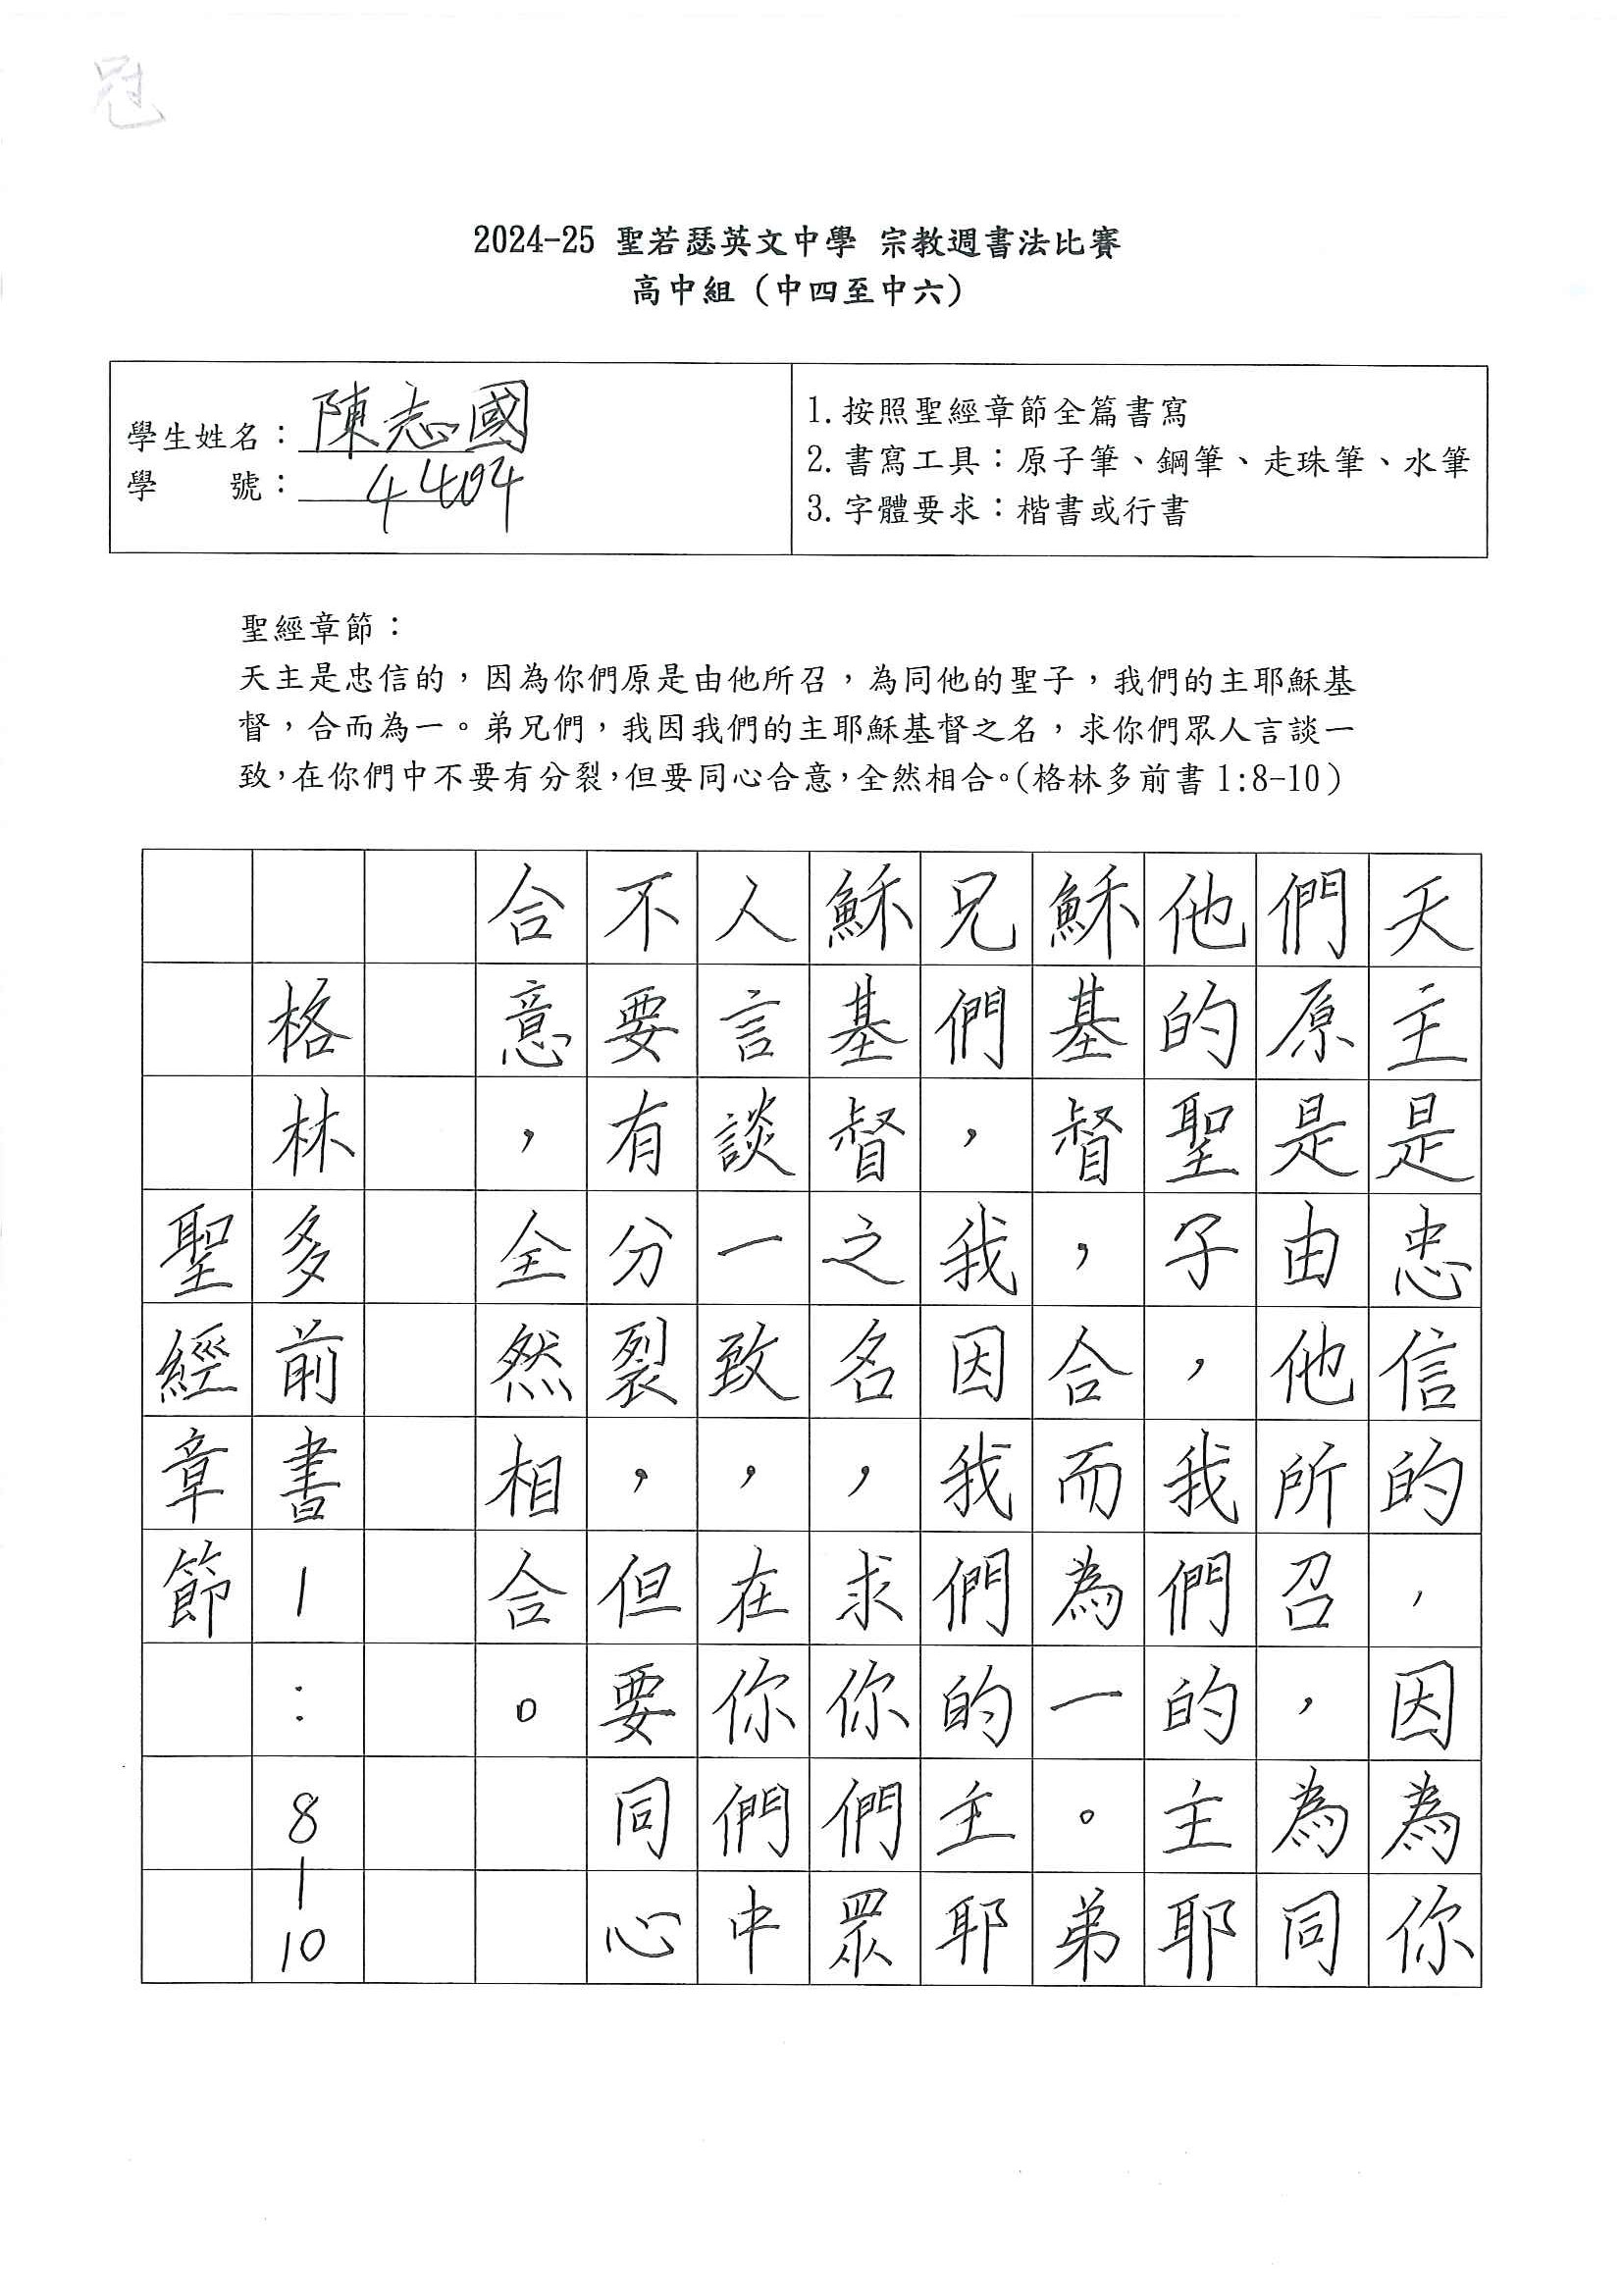 冠
2024-25 聖若瑟英文中學 宗教週書法比賽
高中組（中四至中六）
學生姓名：陳志國
學　　號：4404
1. 按照聖經章節全篇書寫
2. 書寫工具：原子筆、鋼筆、走珠筆、水筆
3. 字體要求：楷書或行書
聖經章節：
天主是忠信的，因為你們原是由他所召，為同他的聖子，我們的主耶穌基
督，合而為一。弟兄們，我因我們的主耶穌基督之名，求你們眾人言談一
致，在你們中不要有分裂，但要同心合意，全然相合。（格林多前書 1:8-10）
天主是忠信的，因為你
們原是由他所召，為同
他的聖子，我們的主耶
穌基督，合而為一。弟
兄們，我因我們的主耶
穌基督之名，求你們眾
人言談一致，在你們中
不要有分裂，但要同心
合意，全然相合。
格林多前書1:8-10
聖經章節